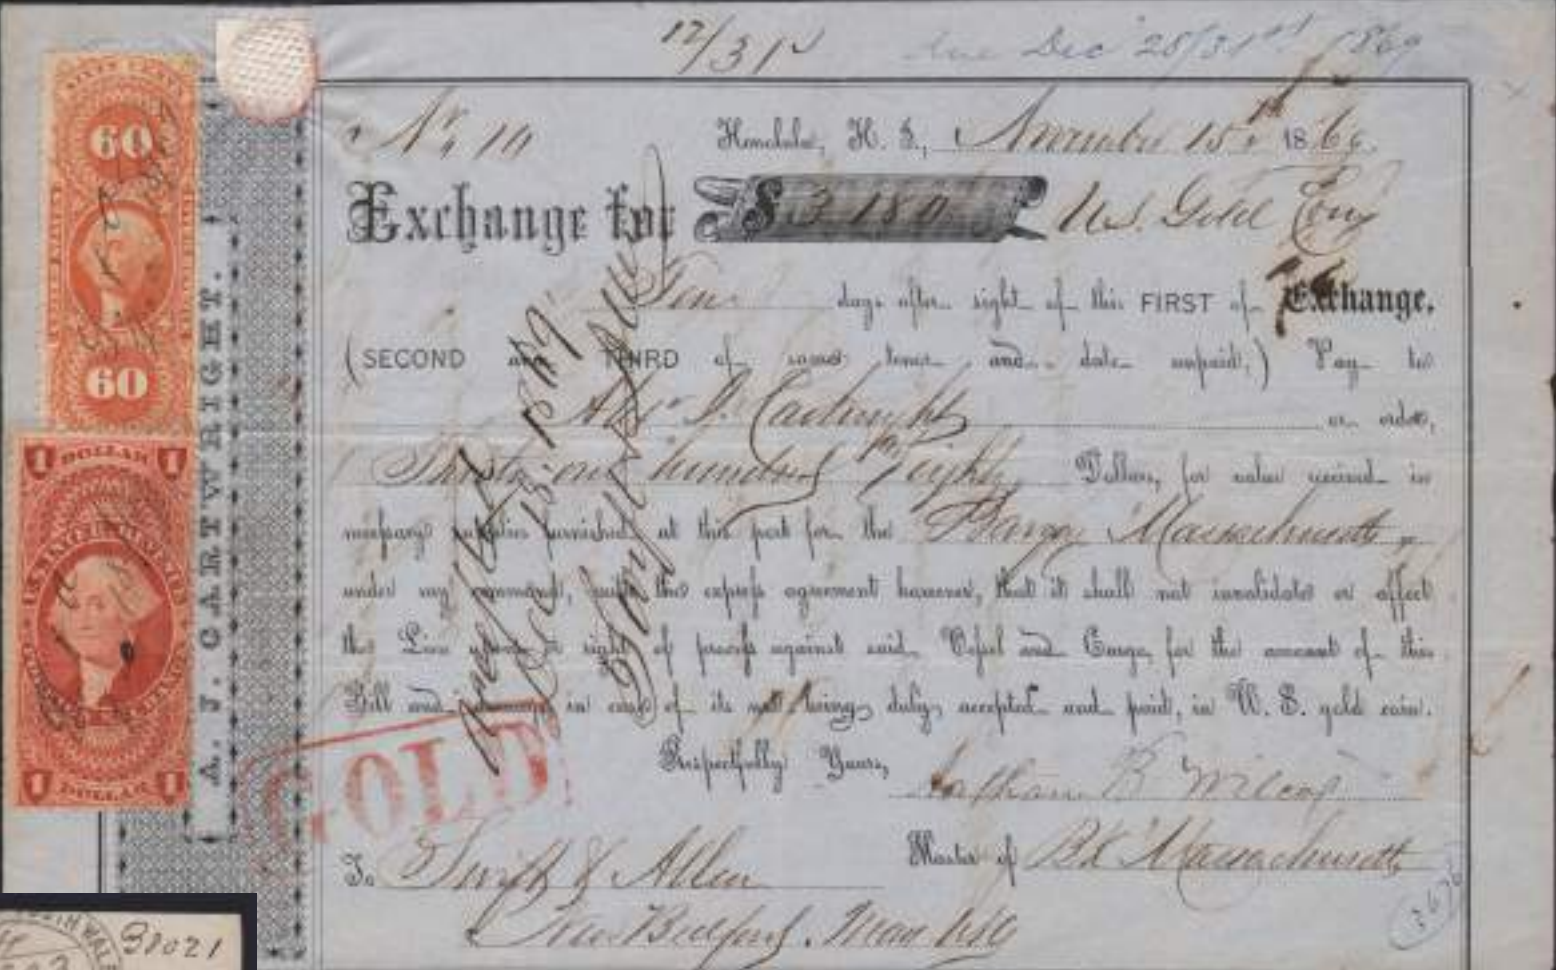 12/31
due Dec 28/31st 1869
No 10 Honolulu, H. I., November 15th 1869.
Exchange for $3180 U.S. Gold Coin
Ten days after sight of this FIRST of Exchange,
(SECOND and THIRD of same tenor and date unpaid,) Pay to
Alexr J. Cartwright or order,
Thirty-one hundred & eighty Dollars, for value received in
necessary supplies furnished at this port for the Barque Massachusetts
under my command, with the express agreement however, that it shall not invalidate or affect
the Lien upon or right of process against said Vessel and Cargo, for the amount of this
Bill and damages in case of its not being duly accepted and paid, in U. S. gold coin.
Respectfully Yours,
Nathan B Wilcox
Master of Bk Massachusetts
To Swift & Allen
New Bedford. Mass USA
Accepted
Dec 18. 1869
Swift & Allen
GOLD
A. J. CARTWRIGHT.
60
60
1 DOLLAR 1
U.S. INTER. REVENUE
1 DOLLAR 1
3676
SOUTH WALES
38021